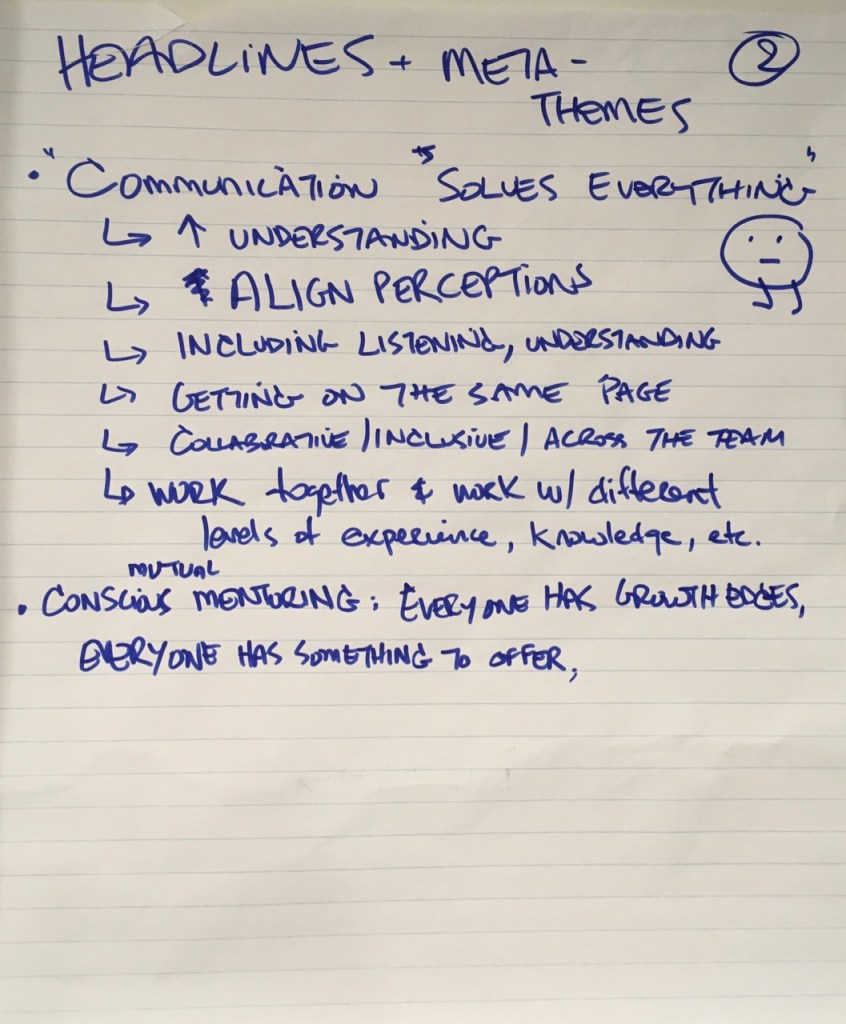 HEADLINES + META-
THEMES
2
• "COMMUNICATION "SOLVES EVERYTHING"
↳ ↑ UNDERSTANDING
↳ ALIGN PERCEPTIONS
↳ INCLUDING LISTENING, UNDERSTANDING
↳ GETTING ON THE SAME PAGE
↳ COLLABRATIVE / INCLUSIVE / ACROSS THE TEAM
↳ WORK together & work w/ different
levels of experience, knowledge, etc.
MUTUAL
• CONSCIOUS MENTORING: EVERYONE HAS GROWTH EDGES,
EVERYONE HAS SOMETHING TO OFFER,